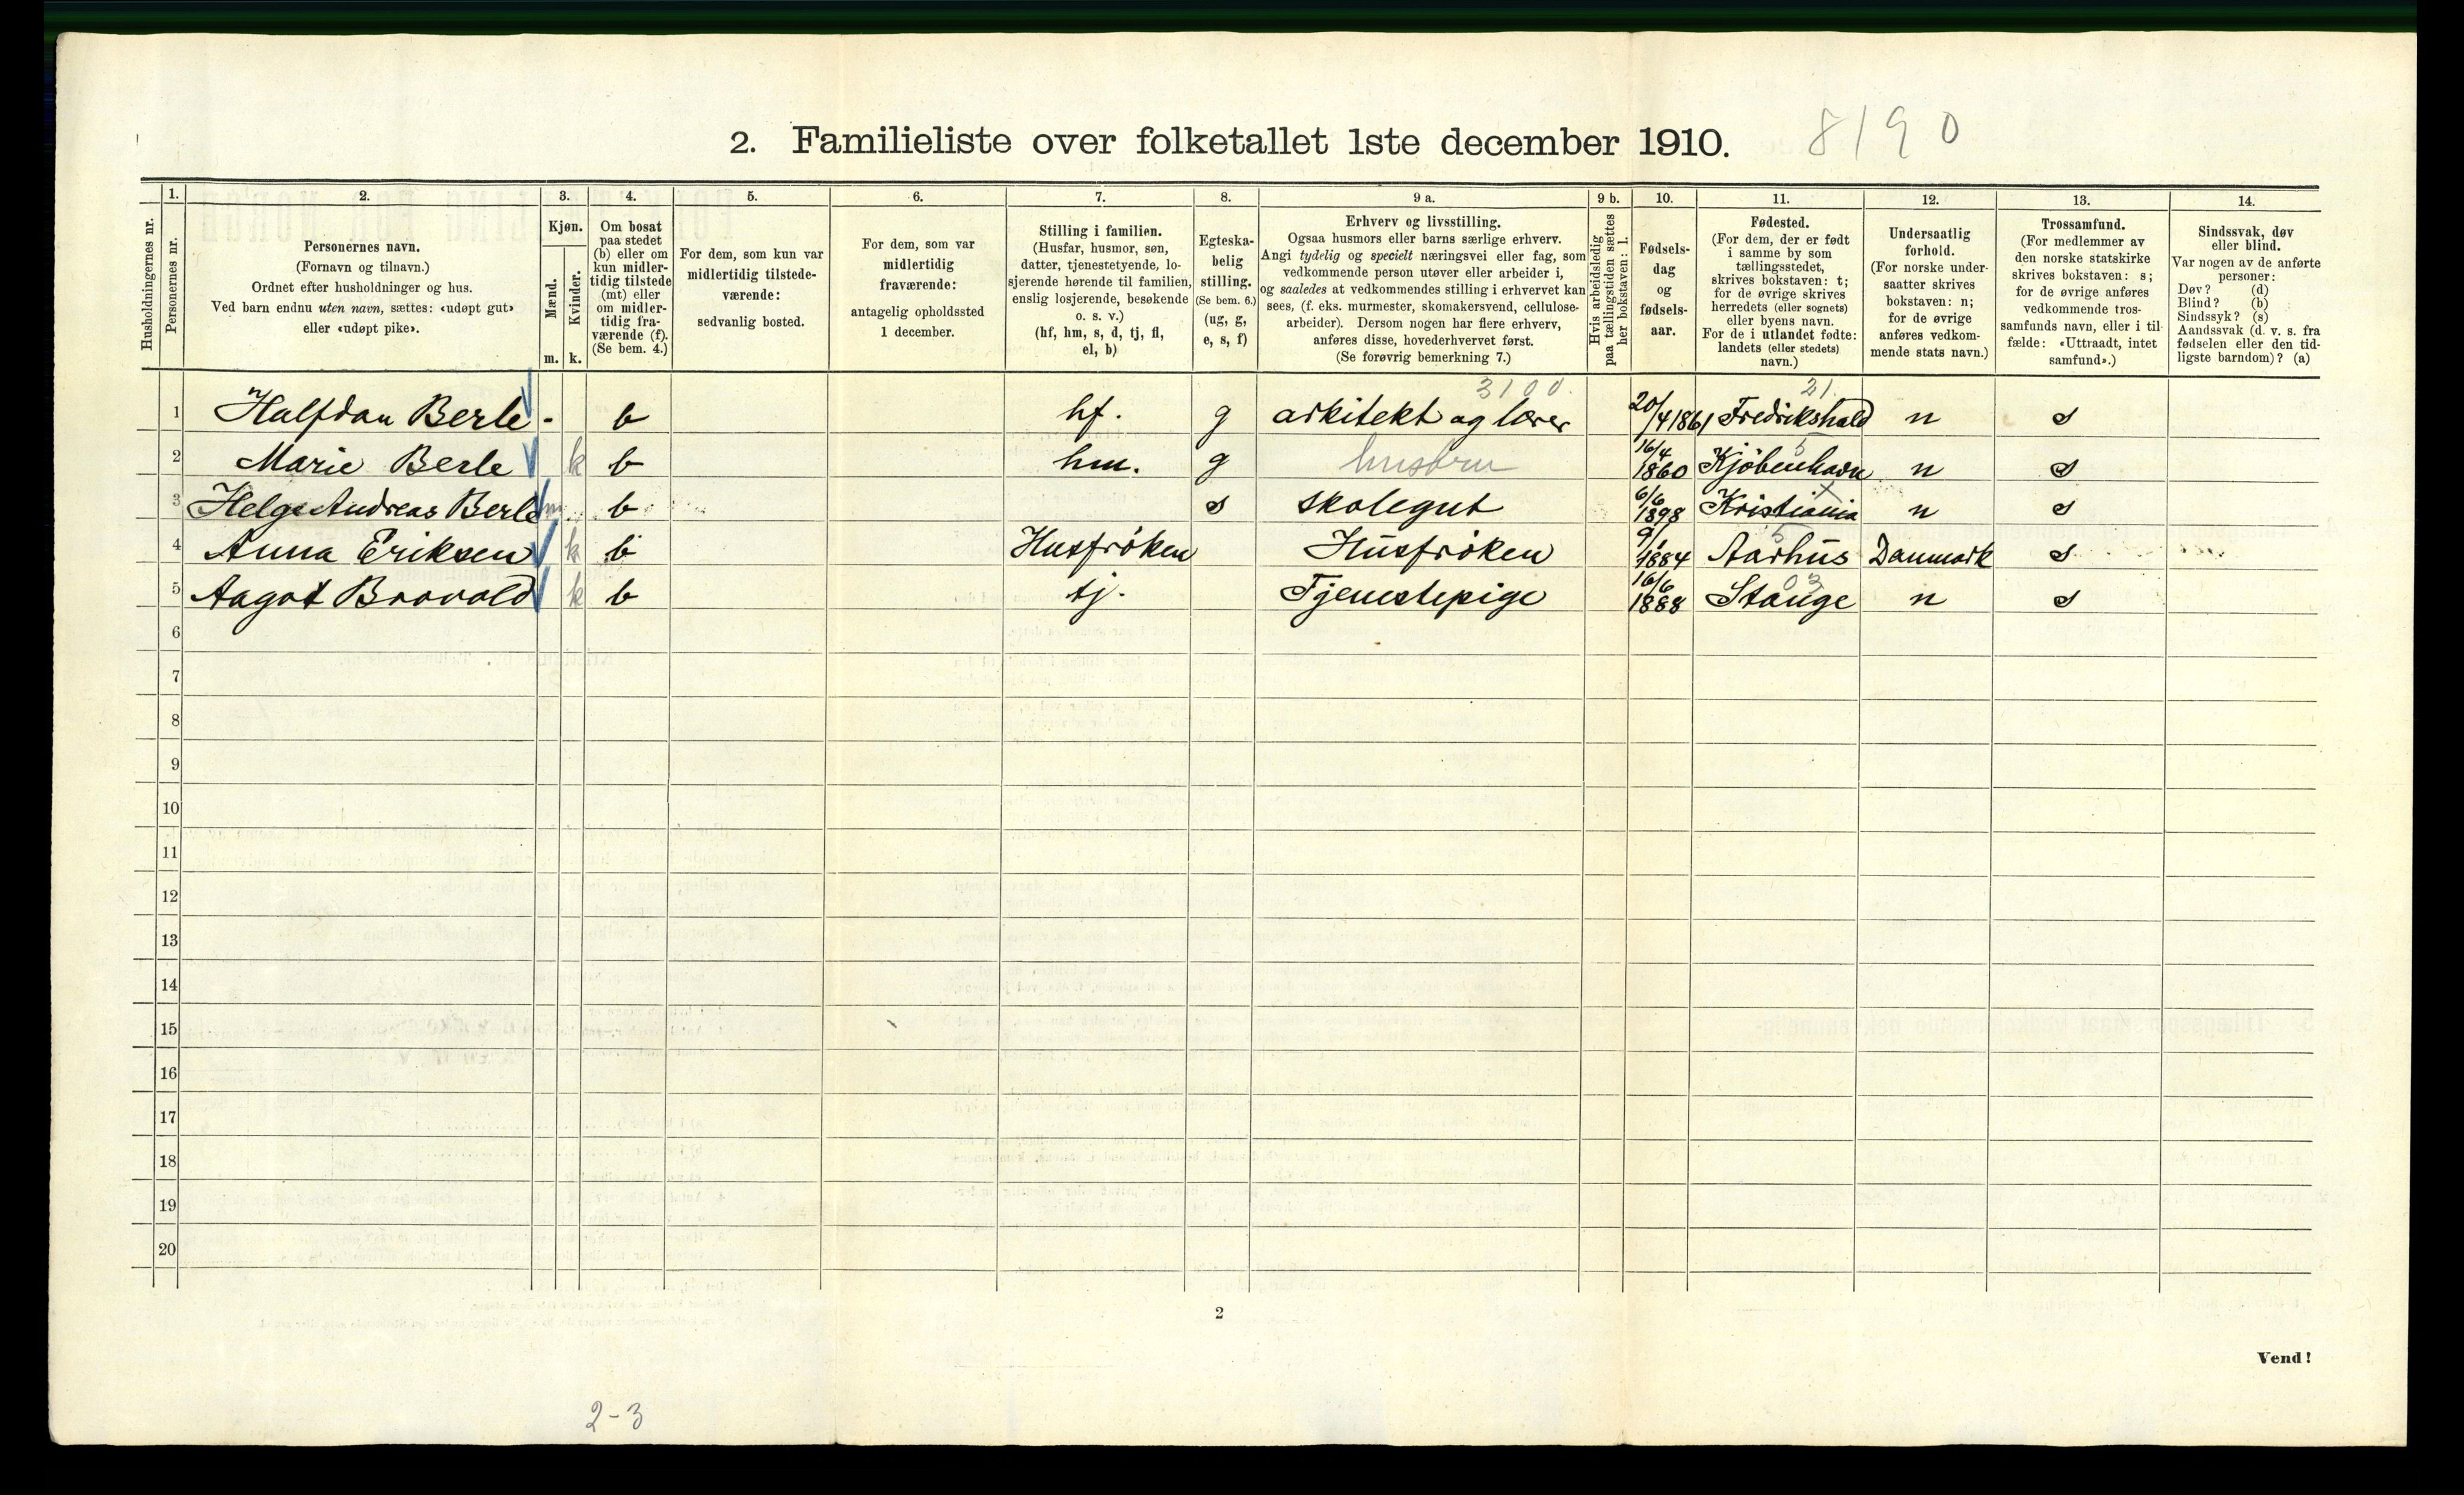 2. Familieliste over folketallet 1ste december 1910. 8190
1. 2. 3. 4. 5. 6. 7. 8. 9 a. 9 b. 10. 11. 12. 13. 14.
Husholdningernes nr.
Personernes nr.
Personernes navn.
(Fornavn og tilnavn.)
Ordnet efter husholdninger og hus.
Ved barn endnu uten navn, sættes: «udøpt gut»
eller «udøpt pike».
Kjøn.
Mænd.
Kvinder.
m. k.
Om bosat
paa stedet
(b) eller om
kun midler-
tidig tilstede
(mt) eller
om midler-
tidig fra-
værende (f).
(Se bem. 4.)
For dem, som kun var
midlertidig tilstede-
værende:
sedvanlig bosted.
For dem, som var
midlertidig
fraværende:
antagelig opholdssted
1 december.
Stilling i familien.
(Husfar, husmor, søn,
datter, tjenestetyende, lo-
sjerende hørende til familien,
enslig losjerende, besøkende
o. s. v.)
(hf, hm, s, d, tj, fl,
el, b)
Egteska-
belig
stilling.
(Se bem. 6.)
(ug, g,
e, s, f)
Erhverv og livsstilling.
Ogsaa husmors eller barns særlige erhverv.
Angi tydelig og specielt næringsvei eller fag, som
vedkommende person utøver eller arbeider i,
og saaledes at vedkommendes stilling i erhvervet kan
sees, (f. eks. murmester, skomakersvend, cellulose-
arbeider). Dersom nogen har flere erhverv,
anføres disse, hovederhvervet først.
(Se forøvrig bemerkning 7.)
Hvis arbeidsledig
paa tællingstiden sættes
her bokstaven: l.
Fødsels-
dag
og
fødsels-
aar.
Fødested.
(For dem, der er født
i samme by som
tællingsstedet,
skrives bokstaven: t;
for de øvrige skrives
herredets (eller sognets)
eller byens navn.
For de i utlandet fødte:
landets (eller stedets)
navn.)
Undersaatlig
forhold.
(For norske under-
saatter skrives
bokstaven: n;
for de øvrige
anføres vedkom-
mende stats navn.)
Trossamfund.
(For medlemmer av
den norske statskirke
skrives bokstaven: s;
for de øvrige anføres
vedkommende tros-
samfunds navn, eller i til-
fælde: «Uttraadt, intet
samfund».)
Sindssvak, døv
eller blind.
Var nogen av de anførte
personer:
Døv? (d)
Blind? (b)
Sindssyk? (s)
Aandssvak (d. v. s. fra
fødselen eller den tid-
ligste barndom)? (a)
3100. 21.
1 Halfdan Berle - b hf. g arkitekt og lærer 20/4 1861 Fredrikshald n s
2 Marie Berle k b hm. g husbru 16/4 1860 Kjöbenhavn n s
3 Helge Andreas Berle m b s skolegut 6/6 1898 Kristiania n s
4 Anna Eriksen k b Husfröken Husfröken 9/1 1884 Aarhus Danmark s
5 Aagot Brovold k b tj. Tjenestepige 16/6 1888 Stange n s
6
7
8
9
10
11
12
13
14
15
16
17
18
19
20
2
Vend!
2-3